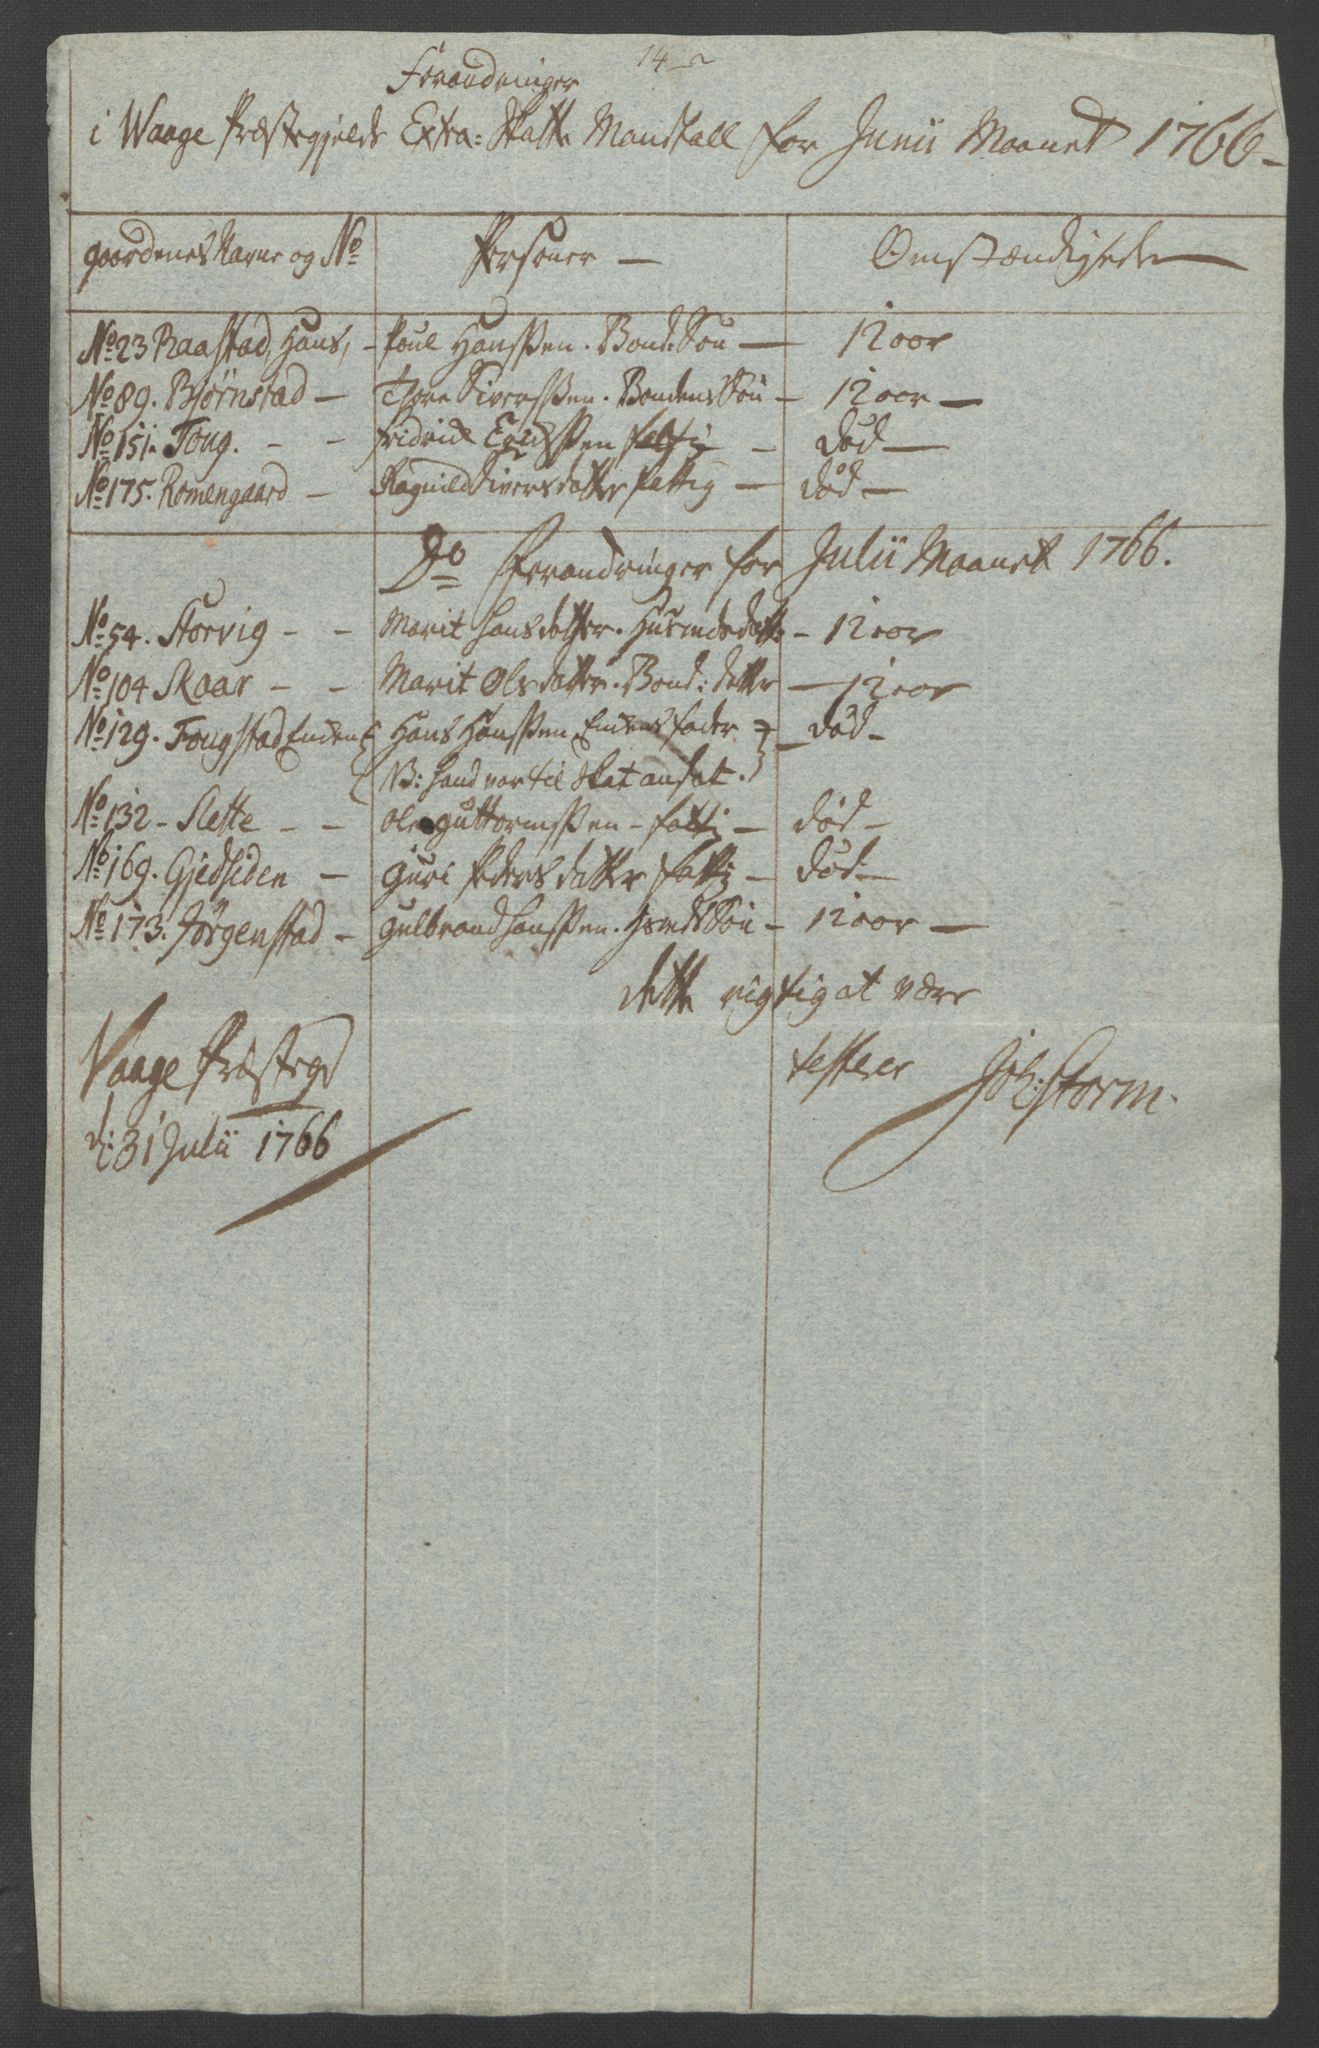 14
Forandringer
i Waage Præstegjelds Extra: Skatte Mandtall for Junii Maanet 1766
gaardenes Navne og No Personer Omstændigheder
No 23 Raastad, Hans, - Poul Hanssen. Bond: Søn 12 aar
No 89. Bjørnstad - Thore Siverssen. Bondens Søn - 12 aar
No 151. Foug. - - Fridrich Erichssen fattig - død
No 175. Romengaard - Ragnild Siversdatter fattig - død
Do Forandringer for Julii Maanet 1766.
No 54. Storvig - - Marit Hansdatter. Husmds datter - 12 aar
No 104 Skaar - - Marit Olsdatter. Bond: datter - 12 aar
No 129. Fougstad Enden Hans Hanssen Endens fader død
NB: hand var til Skat ansat.
No 132 - Slette - - Ole Guttormssen - fattig - død
No 169. Gjedsiden - Guri Pedersdatter fattig - død
No 173. Jørgenstad - Gulbrand Hanssen. Hsmds Søn - 12 aar
dette rigtig at være
Vaage Præstegd testerer Joh: Storm.
d: 31 Julii 1766